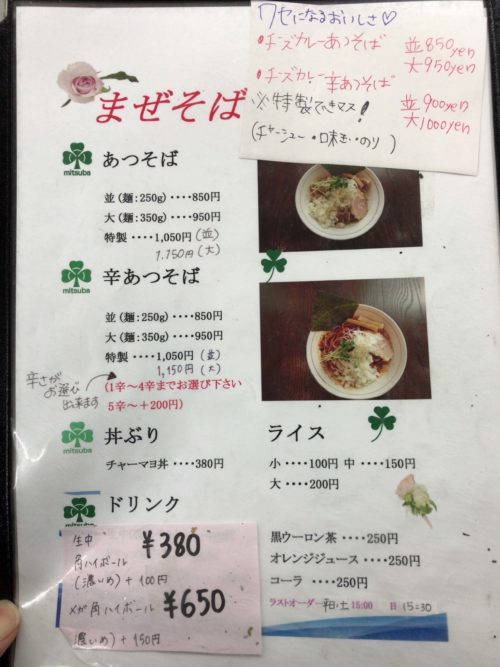 クセになるおいしさ♡
・チーズカレーあつそば 並850yen
大950yen
・チーズカレー辛あつそば 並900yen
大1000yen
※特製できマス!
(チャーシュー・味玉・のり)
まぜそば
mitsuba
あつそば
並(麺:250g)・・・・850円
大(麺:350g)・・・・950円
特製・・・・1,050円(並)
1,150円(大)
mitsuba
辛あつそば
並(麺:250g)・・・・850円
大(麺:350g)・・・・950円
特製・・・・1,050円(並)
1,150円(大)
辛さが
お選び
出来ます
(1辛~4辛までお選び下さい
5辛~+200円)
mitsuba
丼ぶり
チャーマヨ丼・・・・380円
ライス
小・・・・100円 中・・・・150円
大・・・・200円
mitsuba
ドリンク
生中 ¥380
角ハイボール
(濃いめ)+100円
メガ角ハイボール ¥650
濃いめ)+150円
黒ウーロン茶・・・・250円
オレンジジュース・・・・250円
コーラ・・・・250円
ラストオーダー 平日・土 15:00 日 15:30